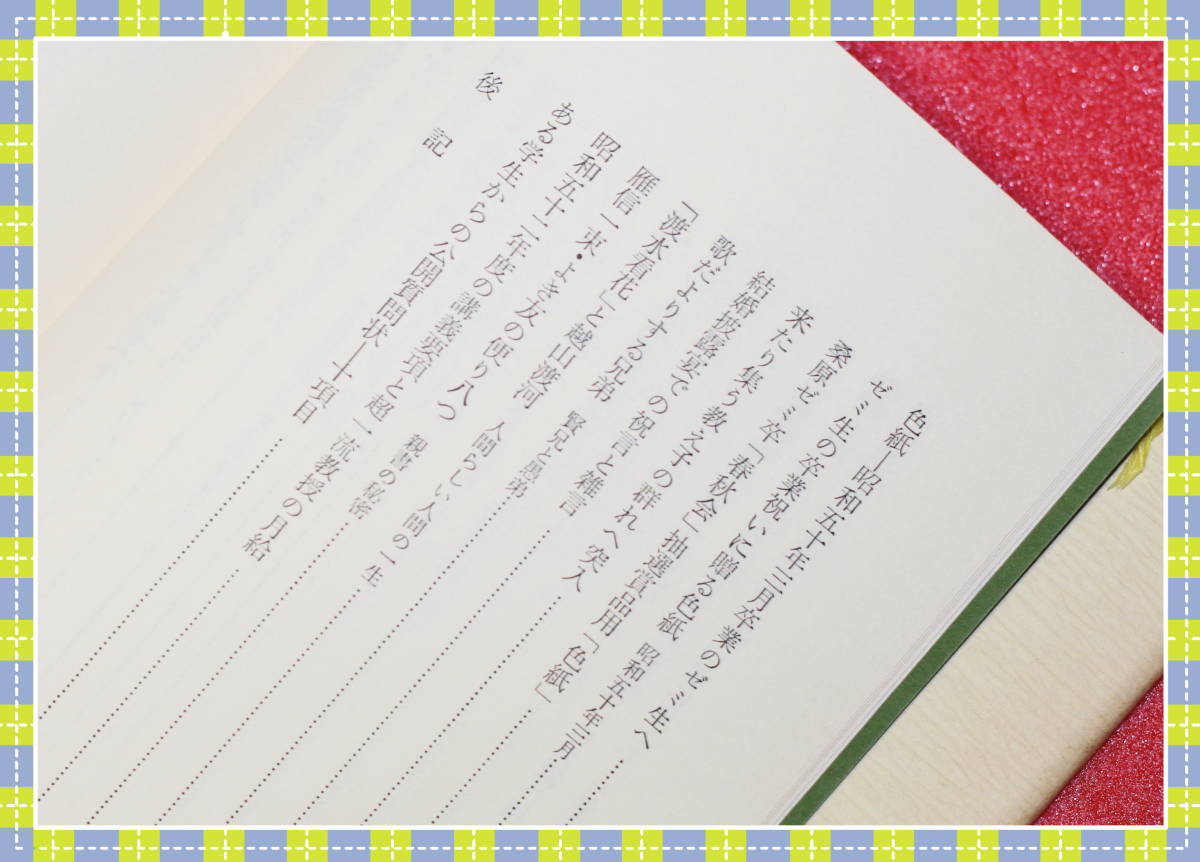 色紙―昭和五十年三月卒業のゼミ生へ…………
ゼミ生の卒業祝いに贈る色紙　昭和五十年三月…………
桑原ゼミ卒「春秋会」抽選賞品用「色紙」…………
来たり集う教え子の群れへ突入…………
結婚披露宴での祝言と雑言…………
歌だよりする兄弟　賢兄と愚弟…………
「渡水看花」と越山渡河　人間らしい人間の一生…………
雁信一束・よき友の便り八つ　親書の秘密…………
昭和五十二年度の講義要項と超一流教授の月給…………
ある学生からの公開質問状―十項目…………
後　記